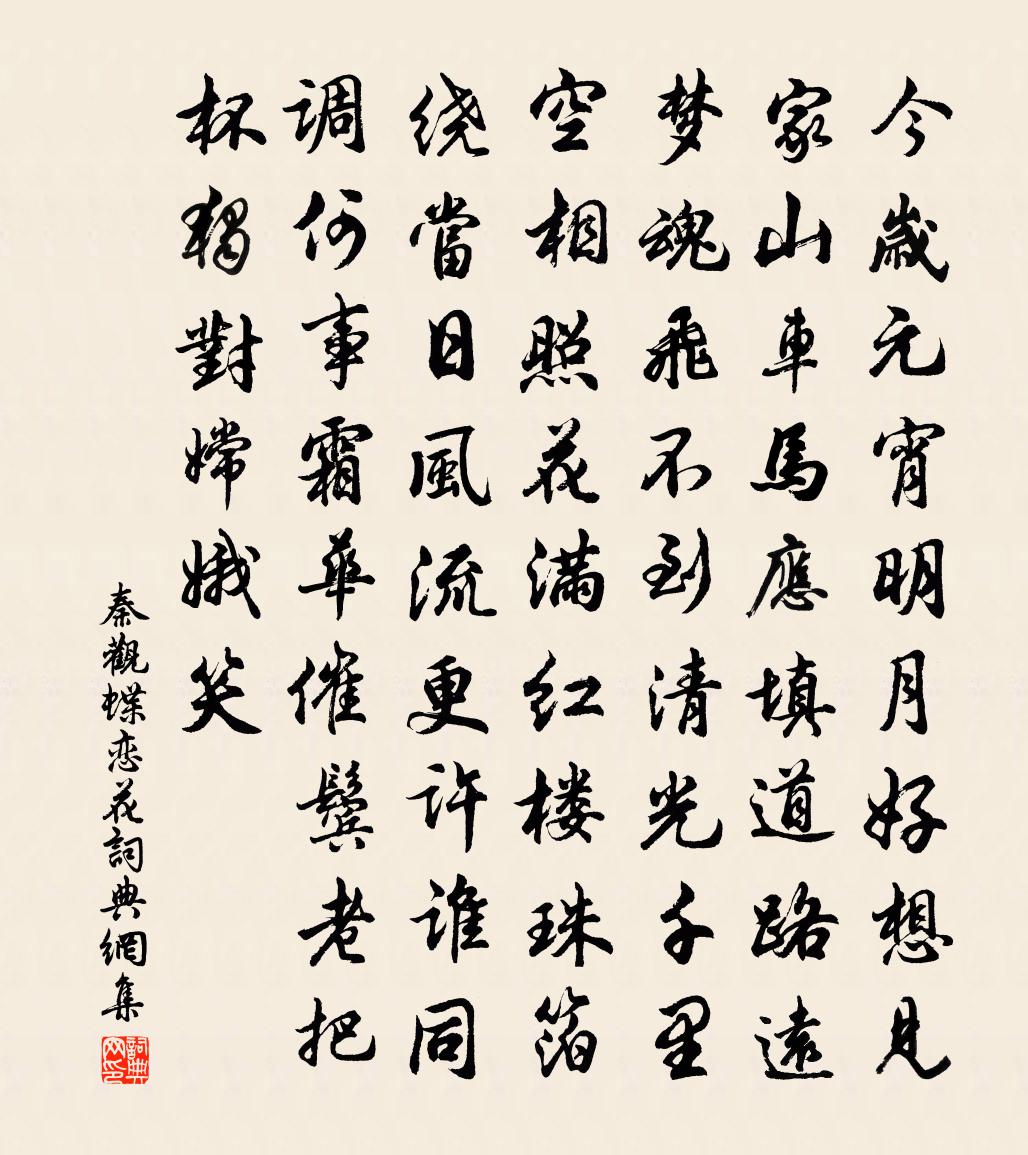 今歲元宵明月好想見
家山車馬應填道路遠
梦魂飛不到清光千里
空相照花满红楼珠箔
绕當日風流更许谁同
调何事霜華催鬓老把
杯獨對嫦娥笑
秦觀蝶恋花詞典網集
詞典网印